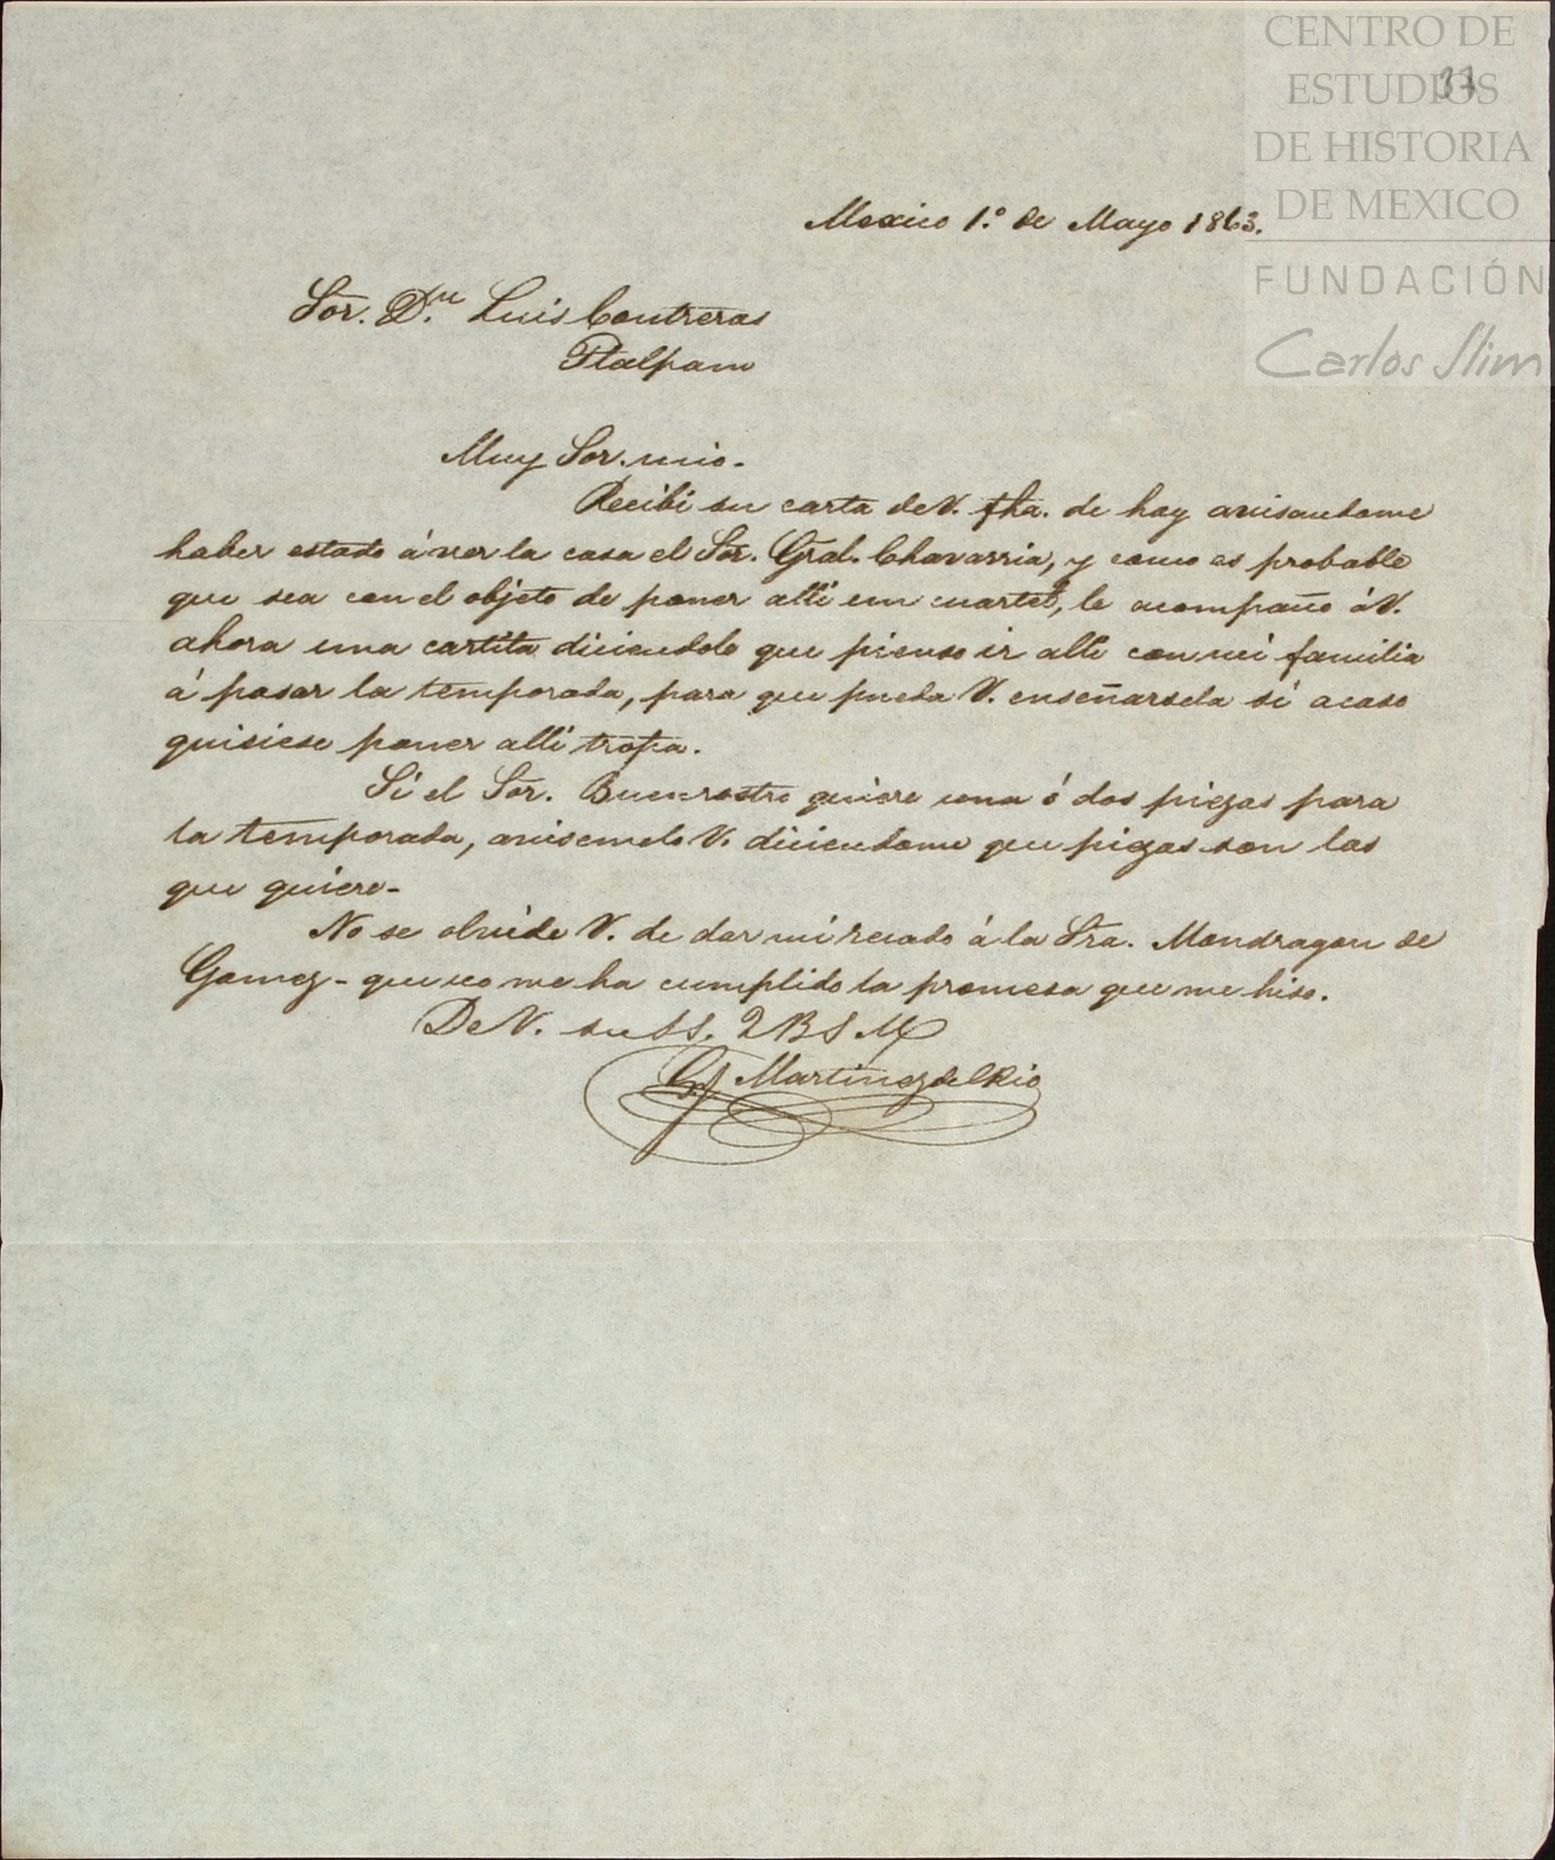 CENTRO DE
ESTUDIOS
DE HISTORIA
DE MEXICO
FUNDACIÓN
Carlos Slim
37
Mexico 1.º de Mayo 1863.
Sor. D.n Luis Contreras
Tlalpam
Muy Sor. mio.
Recibi su carta de V. fha. de hoy avisandome
haber estado á ver la casa el Sor. Gral. Chavarria, y como es probable
que sea con el objeto de poner alli un cuartel, le acompaño á V.
ahora una cartita diciendole que pienso ir alli con mi familia
á pasar la temporada, para que pueda V. enseñarsela si acaso
quisiese poner alli tropa.
Si el Sor. Buenrostro quiere una ó dos piezas para
la temporada, avisemelo V. diciendome que piezas son las
que quiere-
No se olvide V. de dar mi recado á la Sra. Mondragon de
Gomez - que no me ha cumplido la promesa que me hiso.
De V. su SS. Q B S M
Martinez del Rio